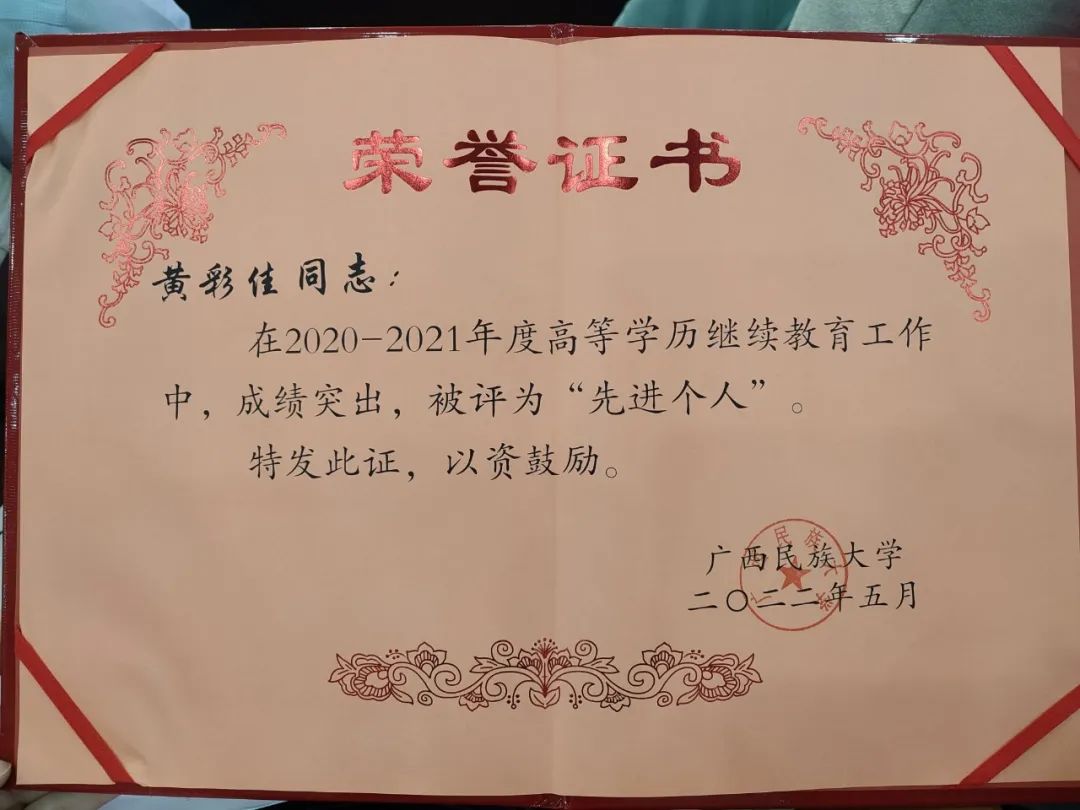 荣誉证书
黄彩佳同志：
在2020-2021年度高等学历继续教育工作
中，成绩突出，被评为“先进个人”。
特发此证，以资鼓励。
广西民族大学
二〇二二年五月